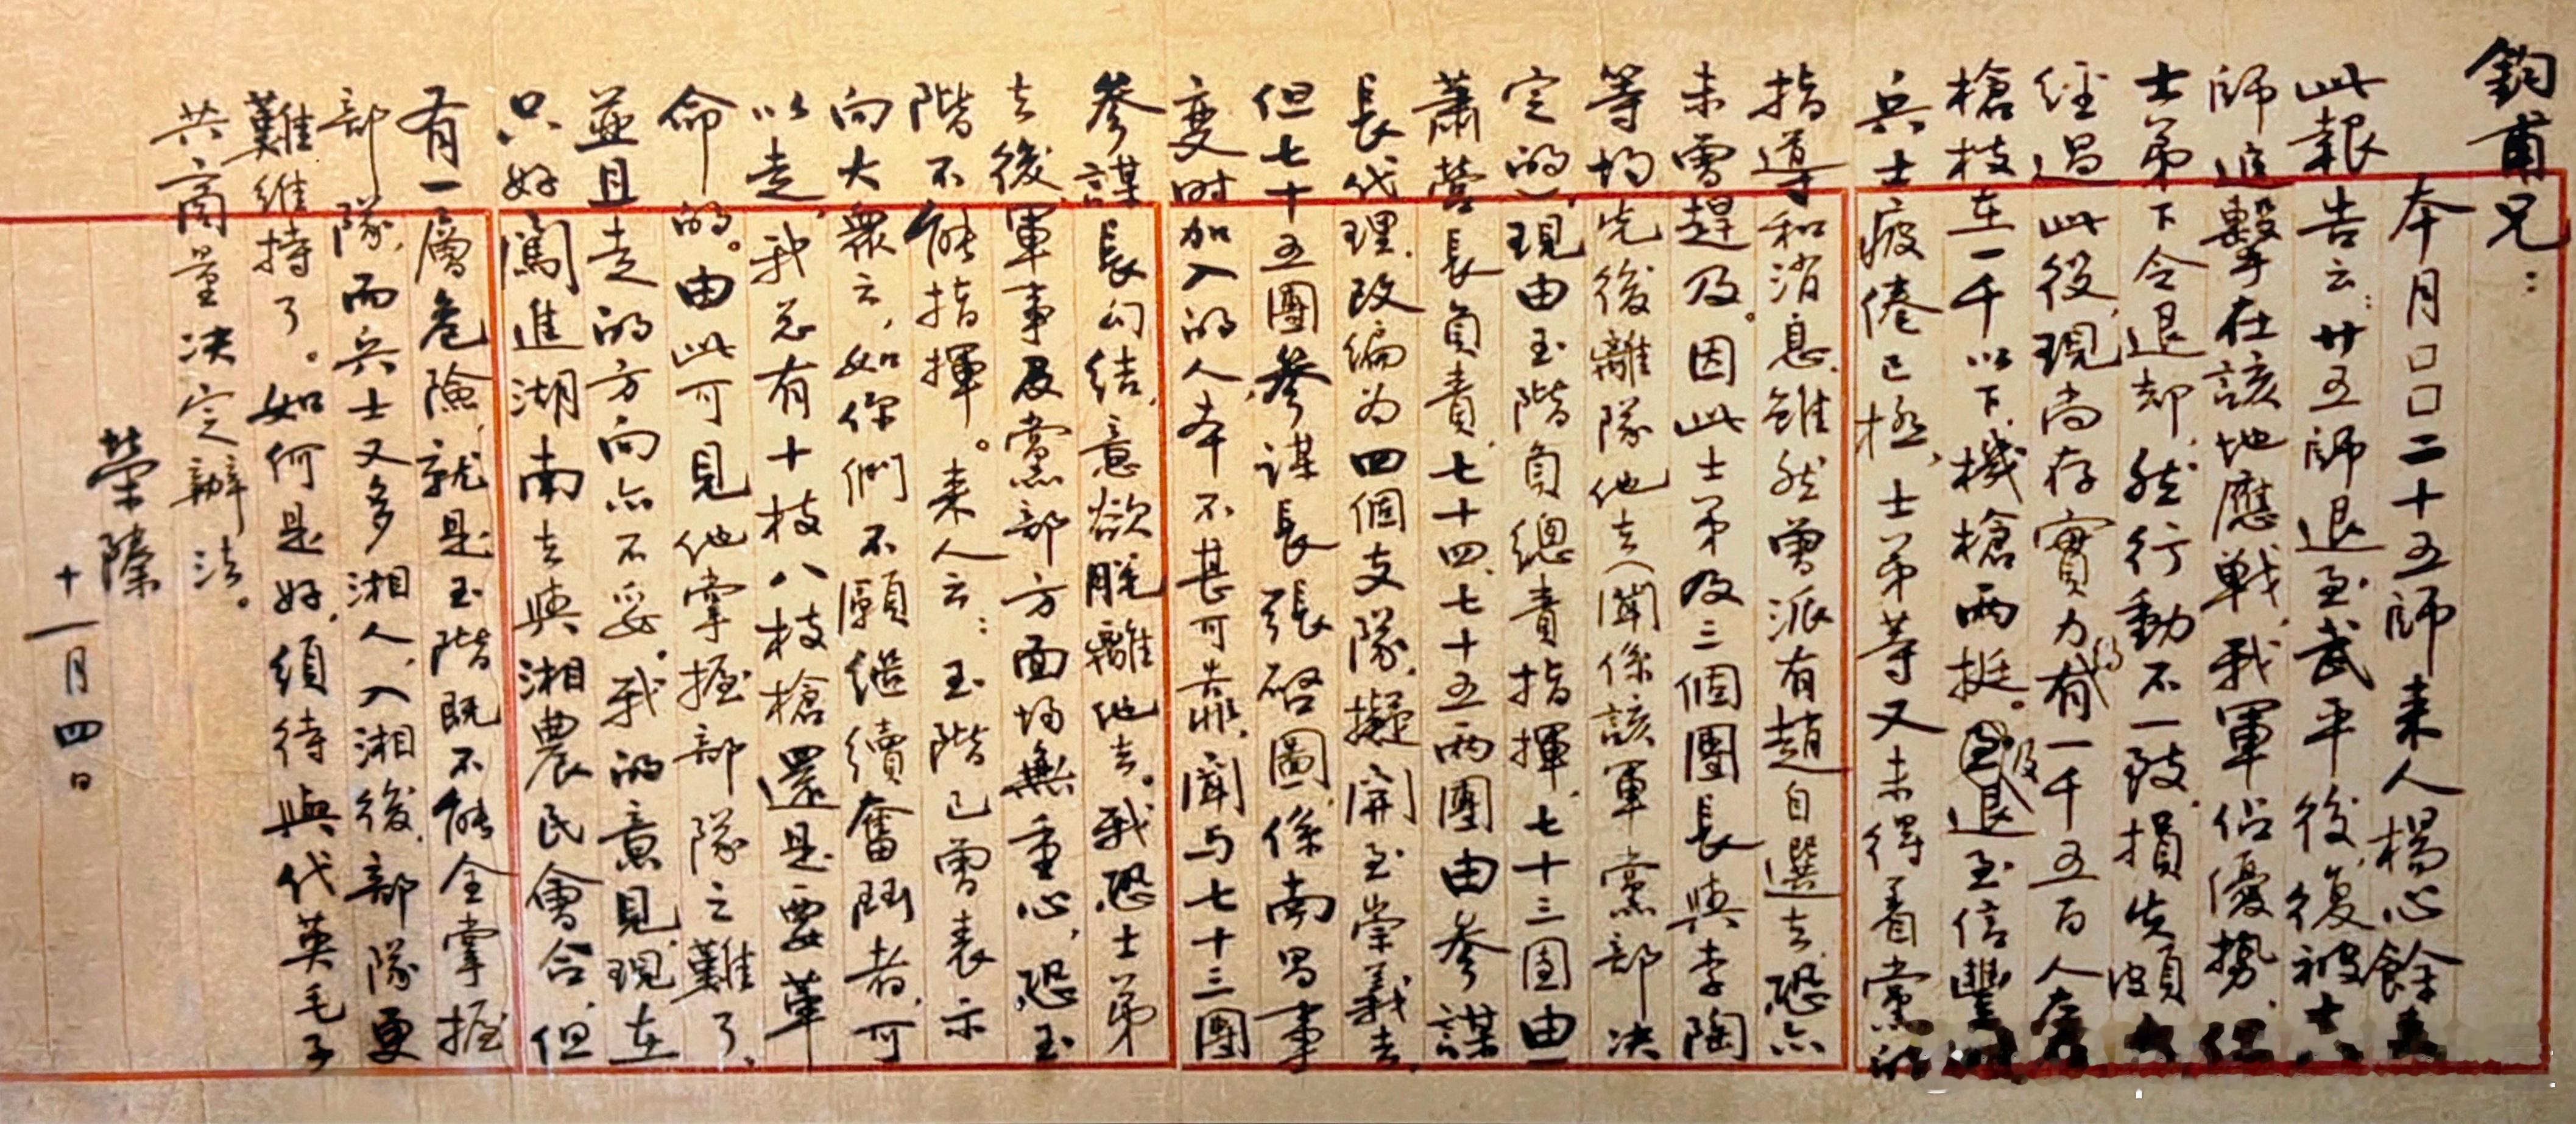 鈞甫兄：
本月口口二十五師来人楊心餘
此報告云：廿五師退至武平後，復被十八
師追擊在該地應戰，我軍佔優勢，
士第下令退却，然行動不一致，損失頗大
經過此役，現尚存實力有一千五百人左右
槍枝在一千以下，機槍兩挺。及退至信豐
兵士疲倦已極，士第等又未得着黨的
指導和消息，雖然曾派有趙自選去，恐亦
未曾趕及。因此士第及三個團長與李陶
等均先後離隊他去（聞係該軍黨部决
定的），現由玉階負總責指揮，七十三團由
蕭營長負責，七十四、七十五兩團由參謀
長代理，改編為四個支隊，擬開至崇義去，
但七十五團參謀長張啓圖，係南昌事
变時加入的人，本不甚可靠，聞与七十三團
參謀長勾结，意欲脫離他去。我恐士第
去後，軍事及黨部方面均無重心，恐玉
階不能指揮。来人云：玉階已曾表示
向大衆云，如你們不願继續奮鬥者，可
以走，我总有十枝八枝槍還是要革
命的。由此可見他掌握部隊之難了，
並且走的方向亦不妥。我的意見，現在
只好闖進湖南去與湘農民會合，但
有一層危險，就是玉階既不能全掌握
部隊，而兵士又多湘人，入湘後，部隊更
難維持了。如何是好，須待與代英毛子
共商量决定辦法。
榮臻
十一月四日